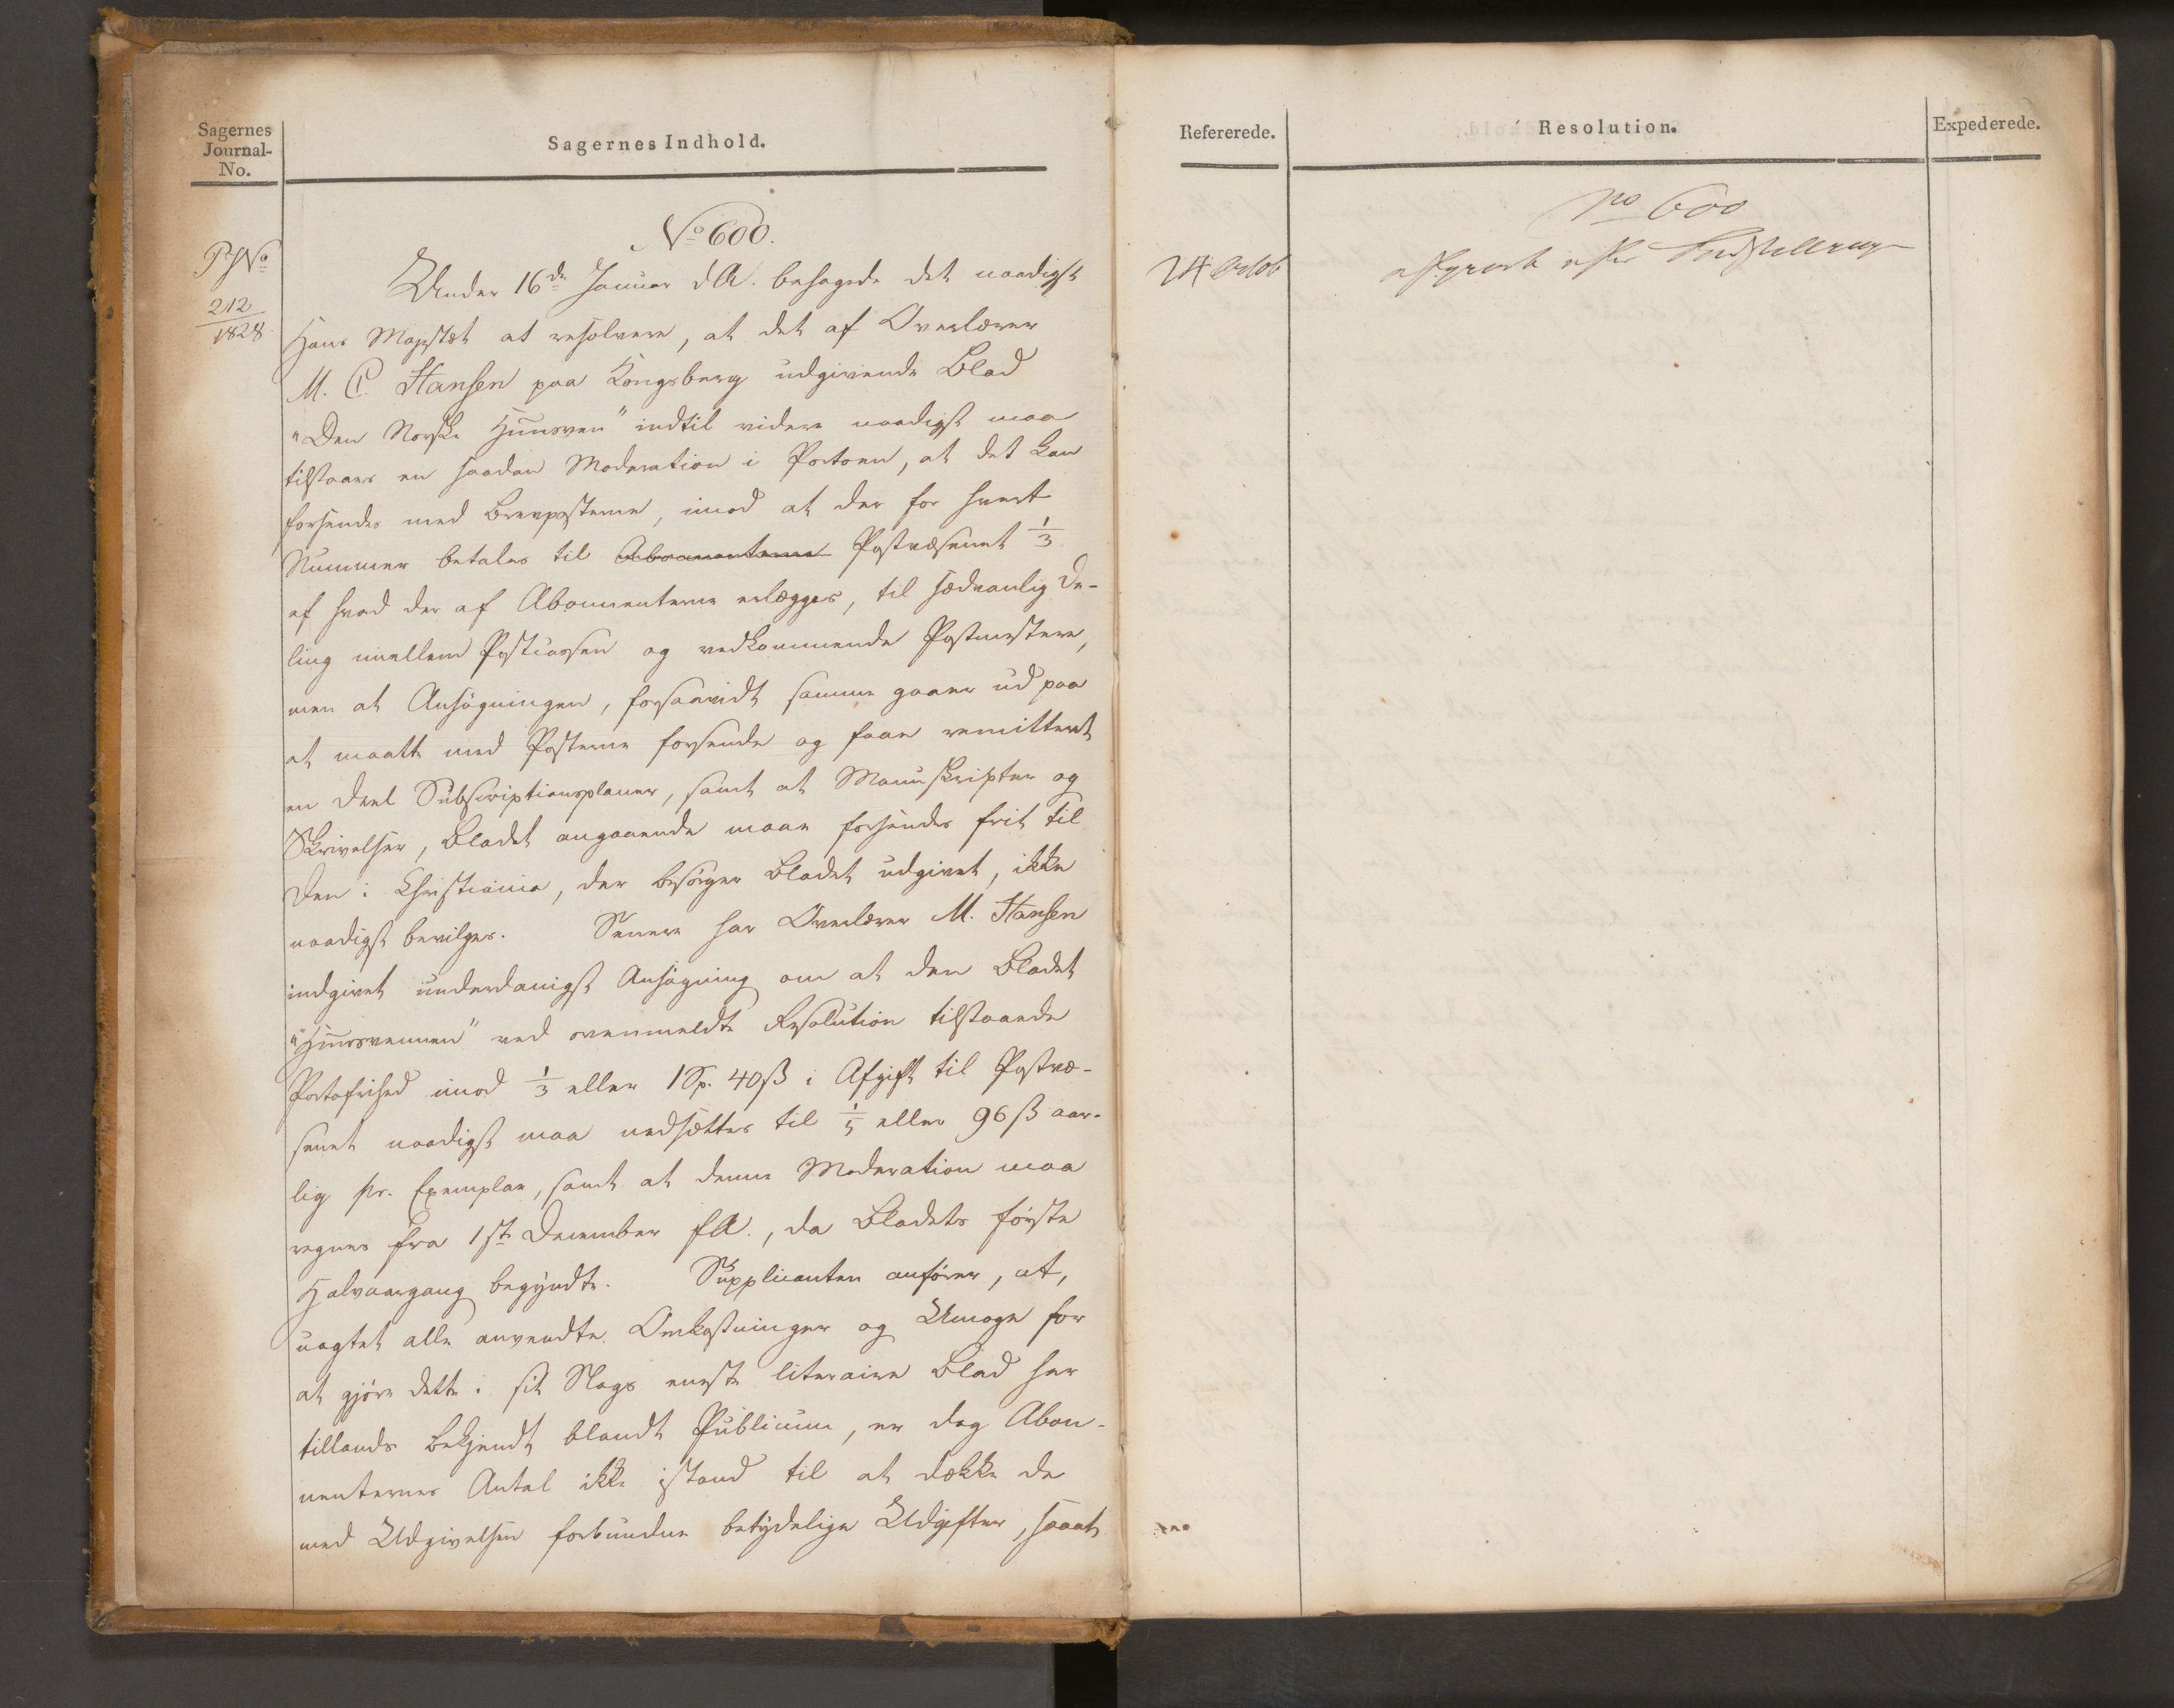 Sagernes
Journal-
No.
Sagernes Indhold.
No 600.
PJNo
212
1828
Under 16de Januar d A. behagede det naadigst
Hans Majestæt at resolvere, at det af Overlærer
M. C. Hansen paa Kongsberg udgivende Blad
"Den Norske Huusven" indtil videre naadigst maa
tilstaaes en saadan Moderation i Portoen, at det kan
forsendes med Brevposterne, imod at der for hvert
Nummer betales til Abonnenterne Postvæsenet 1/3
af hvad der af Abonnenterne erlægges, til sædvanlig De-
ling imellem Postcassen og vedkommende Postmestere,
men at Ansøgningen, forsaavidt samme gaaer ud paa
at maatte med Posterne forsende og faae remitteret
en Deel Subscriptionsplaner, samt at Manuskripter og
Skrivelser, Bladet angaaende maae forsendes frit til
Den i Christiania, der besørger Bladet udgivet, ikke
naadigst bevilges. Senere har Overlærer M. Hansen
indgivet underdanigst Ansøgning om at den Bladet
"Huusvennen" ved ovenmeldte Resolution tilstaaede
Portofrihed imod 1/3 eller 1 Sp. 40 ß i Afgift til Postvæ-
senet naadigst maa nedsættes til 1/5 eller 96 ß aar-
lig pr. Exemplar, samt at denne Moderation maa
regnes fra 1ste December f A., da Bladets første
Halvaargang begyndte. Supplicanten anfører, at,
uagtet alle anvendte Omkostninger og Umage for
at gjøre dette i sit Slags eneste literaire Blad her
tillands bekjendt blandt Publicum, er dog Abon-
nenternes Antal ikke istand til at dække de
med Udgivelsen forbundne betydelige Udgifter, saaat
Refererede.
Resolution.
Expederede.
No 600
24 Octob
afgjort efter Indstilling